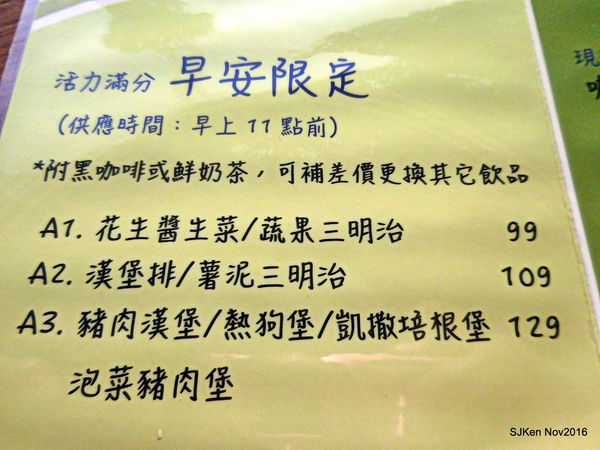 活力滿分 早安限定
(供應時間：早上 11 點前)
*附黑咖啡或鮮奶茶，可補差價更換其它飲品
A1. 花生醬生菜/蔬果三明治 99
A2. 漢堡排/薯泥三明治 109
A3. 豬肉漢堡/熱狗堡/凱撒培根堡 129
泡菜豬肉堡
現
SJKen Nov2016